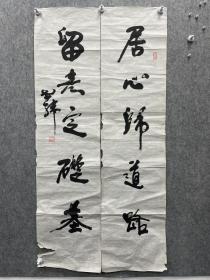 居心歸道路
留意定礎基